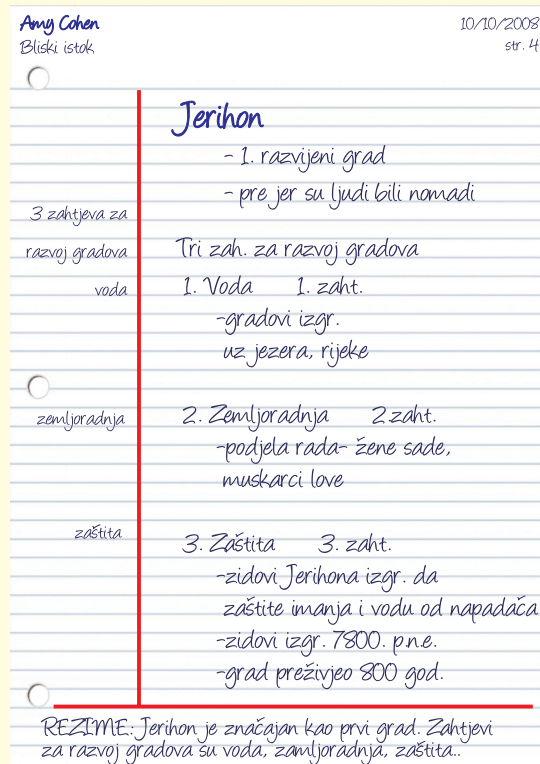 Amy Cohen
10/10/2008
Bliski istok
str. 4
Jerihon
- 1. razvijeni grad
- pre jer su ljudi bili nomadi
3 zahtjeva za
razvoj gradova
Tri zah. za razvoj gradova
voda
1. Voda 1. zaht.
-gradovi izgr.
uz jezera, rijeke
zemljoradnja
2. Zemljoradnja 2.zaht.
-podjela rada- žene sade,
muskarci love
zaštita
3. Zaštita 3. zaht.
-zidovi Jerihona izgr. da
zaštite imanja i vodu od napadača
-zidovi izgr. 7800. p.n.e.
-grad preživjeo 800 god.
REZIME: Jerihon je značajan kao prvi grad. Zahtjevi
za razvoj gradova su voda, zamljoradnja, zaštita..